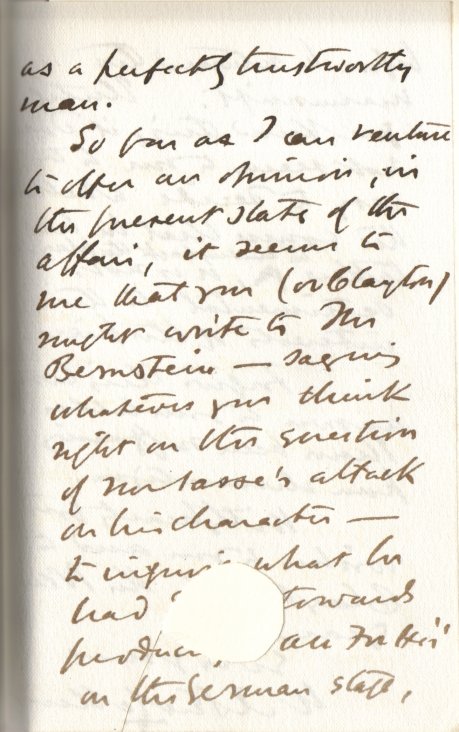 as a perfectly trustworthy
man.
So far as I can venture
to offer an opinion, in
the present state of the
affair, it seems to
me that you (or Clayton)
might write to Mr
Bernstein — saying
whatever you think
right on the question
of attack
on his character —
to inquire what he
had towards
produ
on the German stage,